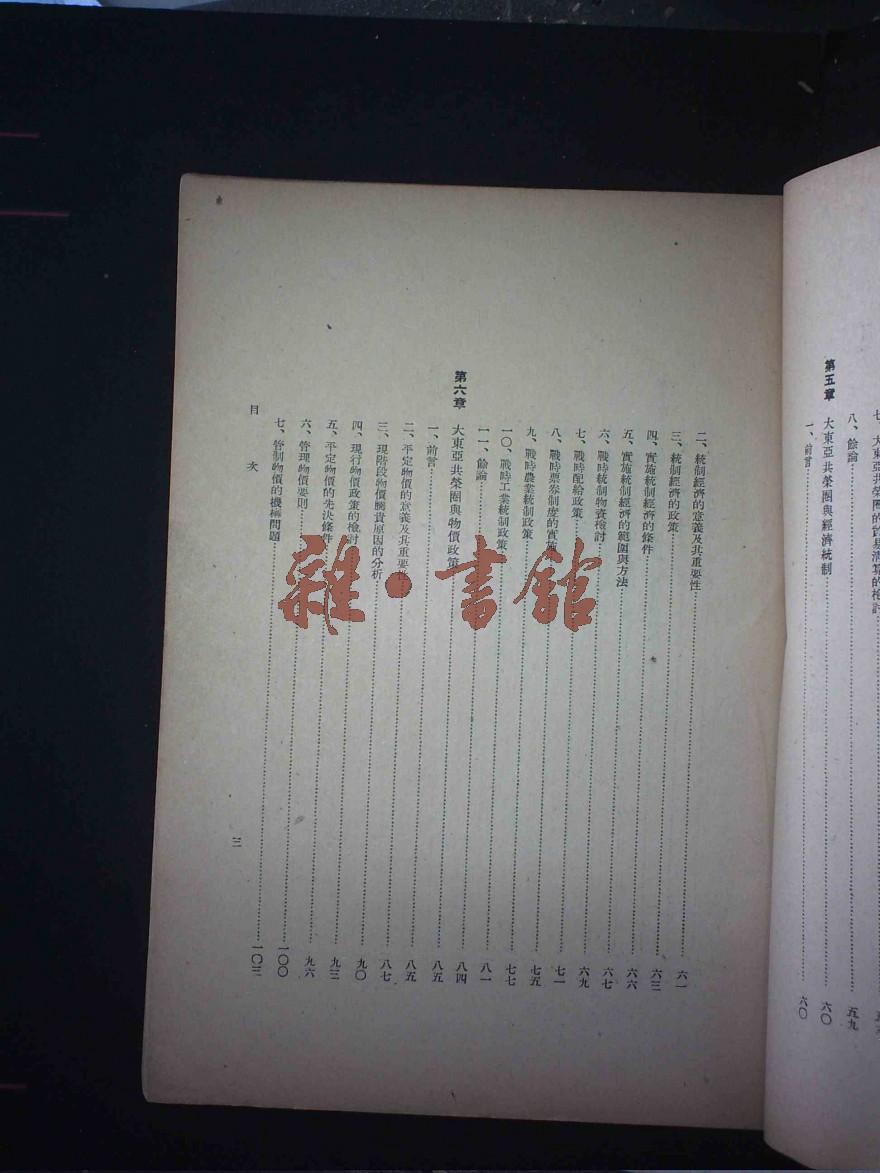 七、大東亞共榮圈的貿易清算的檢討
八、餘論……五九
第五章 大東亞共榮圈與經濟統制……六〇
一、前言……六〇
二、統制經濟的意義及其重要性……六一
三、統制經濟的政策……六三
四、實施統制經濟的條件……六六
五、實施統制經濟的範圍與方法……六七
六、戰時統制物資檢討……六九
七、戰時配給政策……七一
八、戰時票券制度的實施……七五
九、戰時農業統制政策……七七
一〇、戰時工業統制政策……八一
一一、餘論……八四
第六章 大東亞共榮圈與物價政策……八五
一、前言……八五
二、平定物價的意義及其重要性……八七
三、現階段物價騰貴原因的分析……九〇
四、現行物價政策的檢討……九三
五、平定物價的先決條件……九六
六、管理物價要則……一〇〇
七、管制物價的機構問題……一〇三
目次
三
雜·書舘